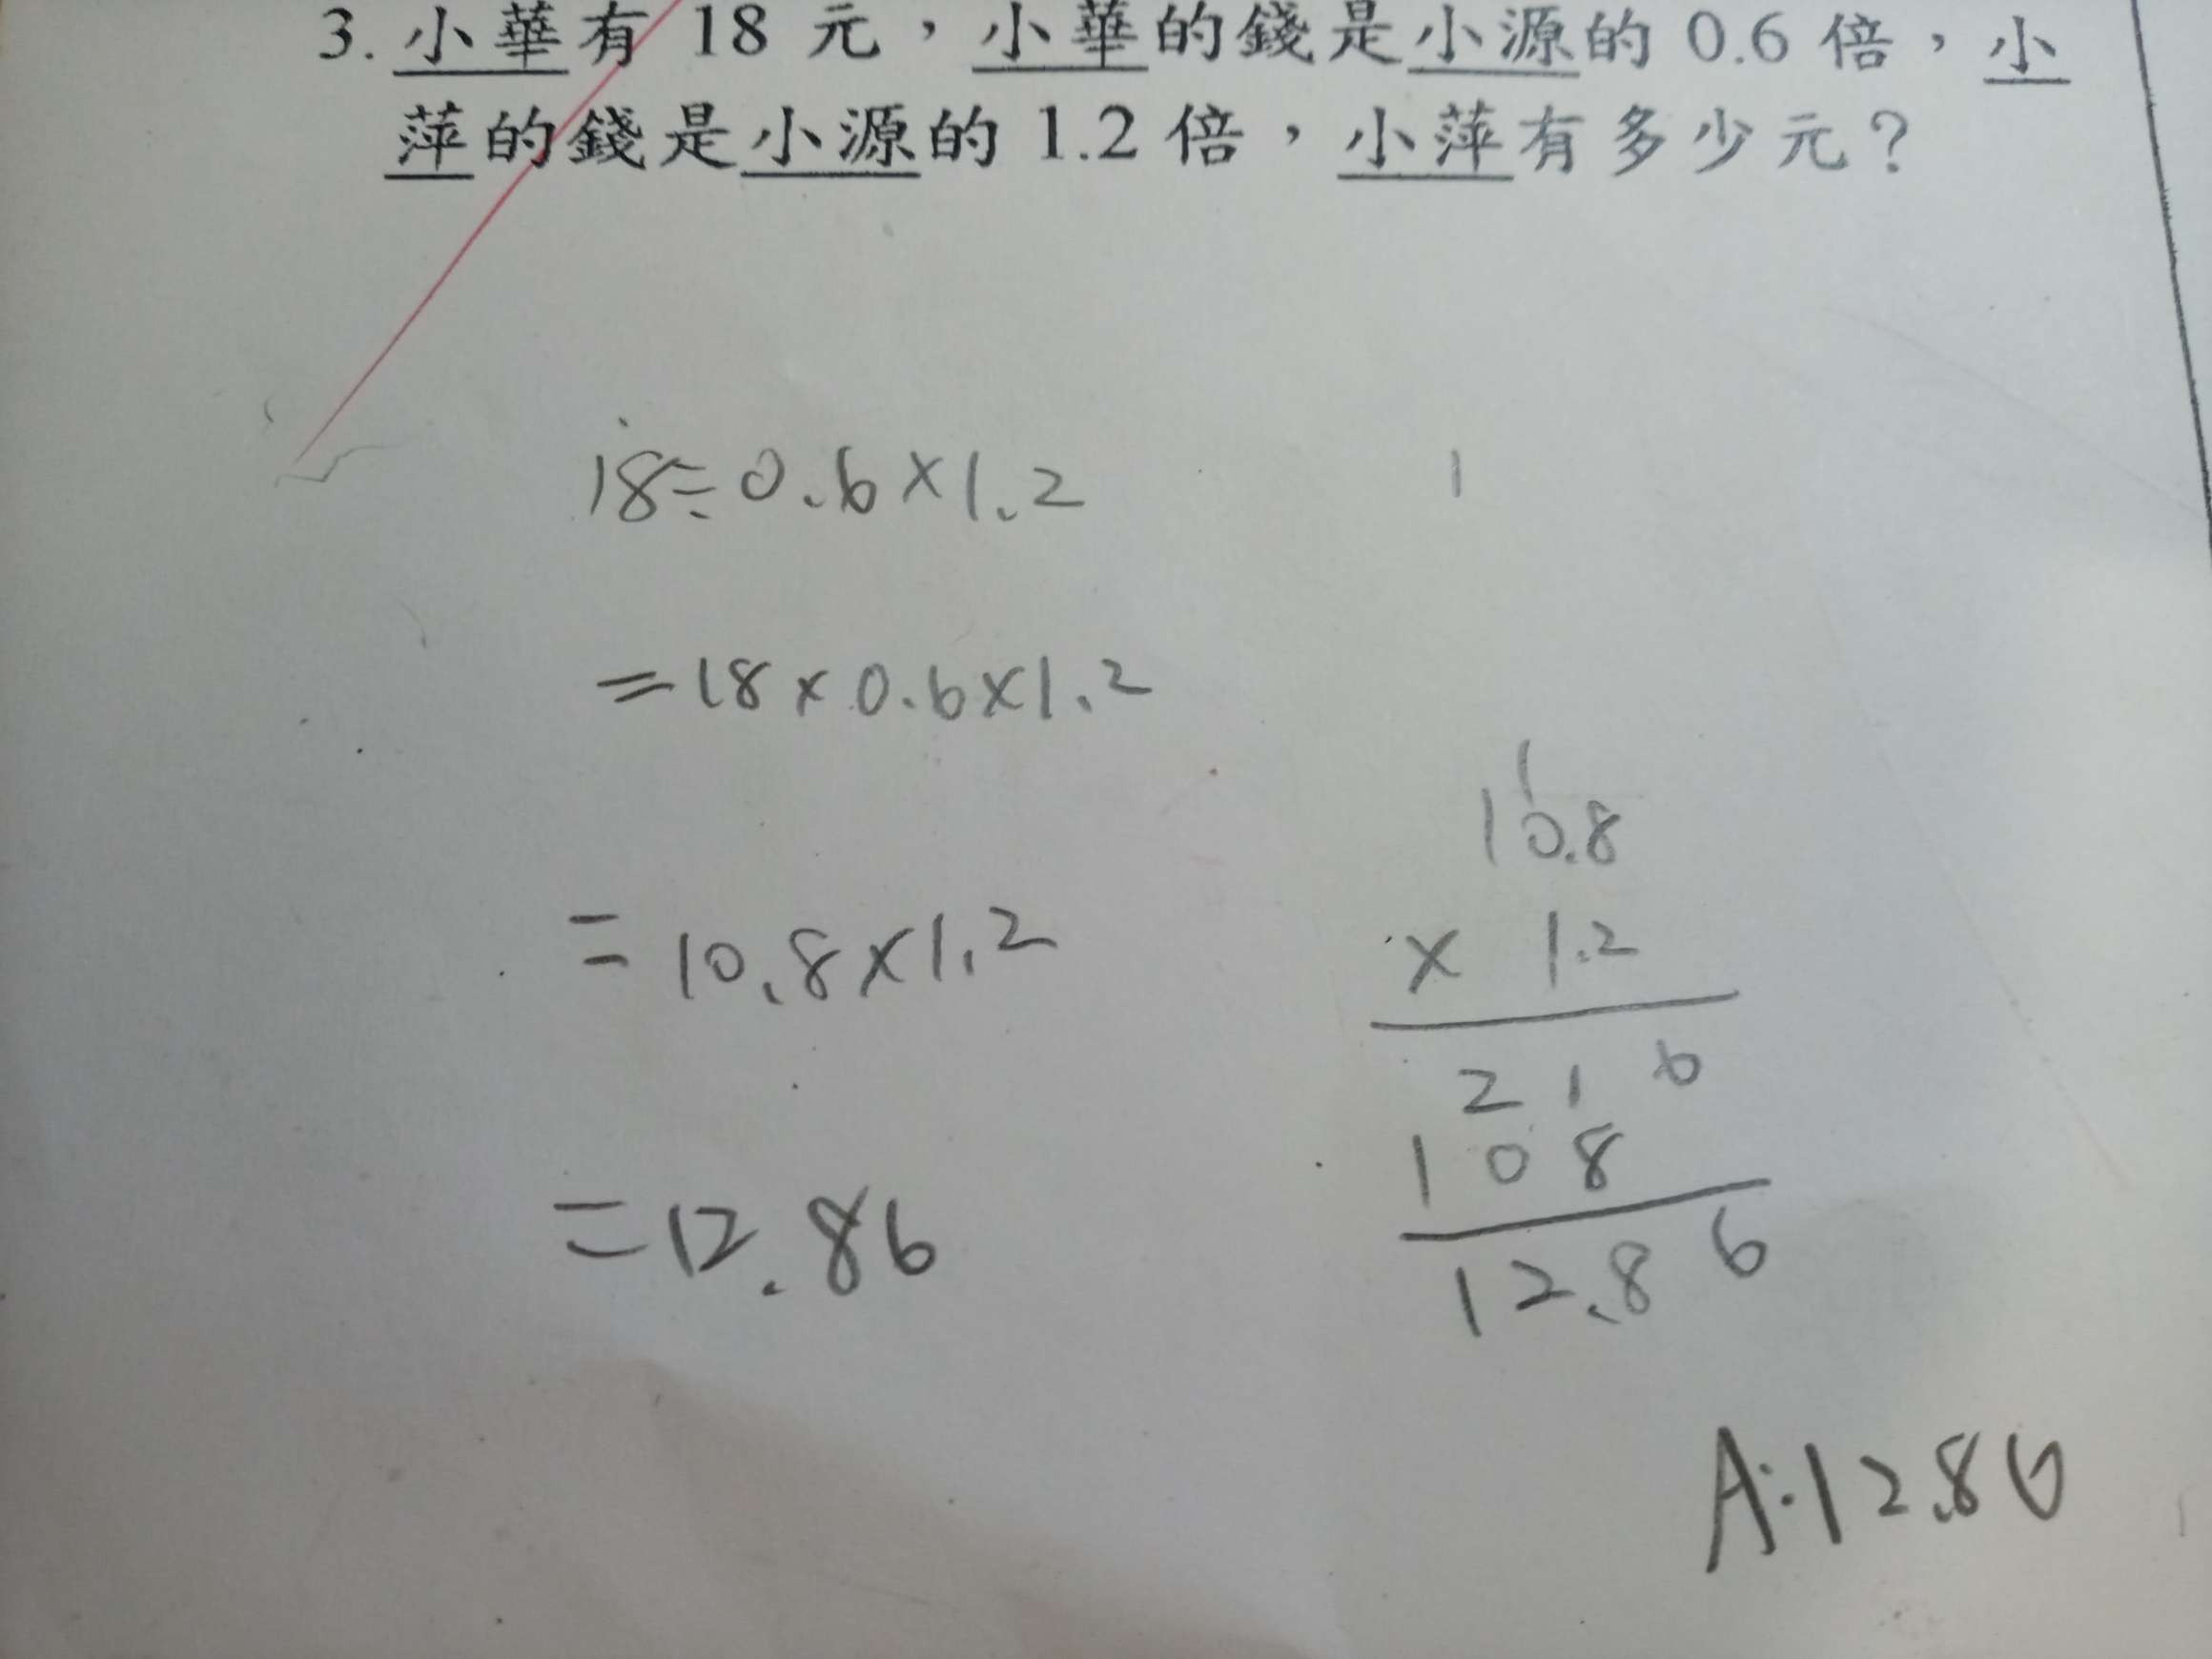 3. 小華有 18 元，小華的錢是小源的 0.6 倍，小
萍的錢是小源的 1.2 倍，小萍有多少元？
18÷0.6×1.2
1
=18×0.6×1.2
=10.8×1.2
=12.86
1
10.8
× 1.2
2 1 6
1 0 8
12.86
A:12.86